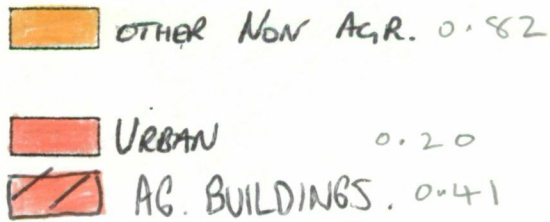 OTHER NON AGR. 0.82
URBAN 0.20
AG. BUILDINGS. 0.41